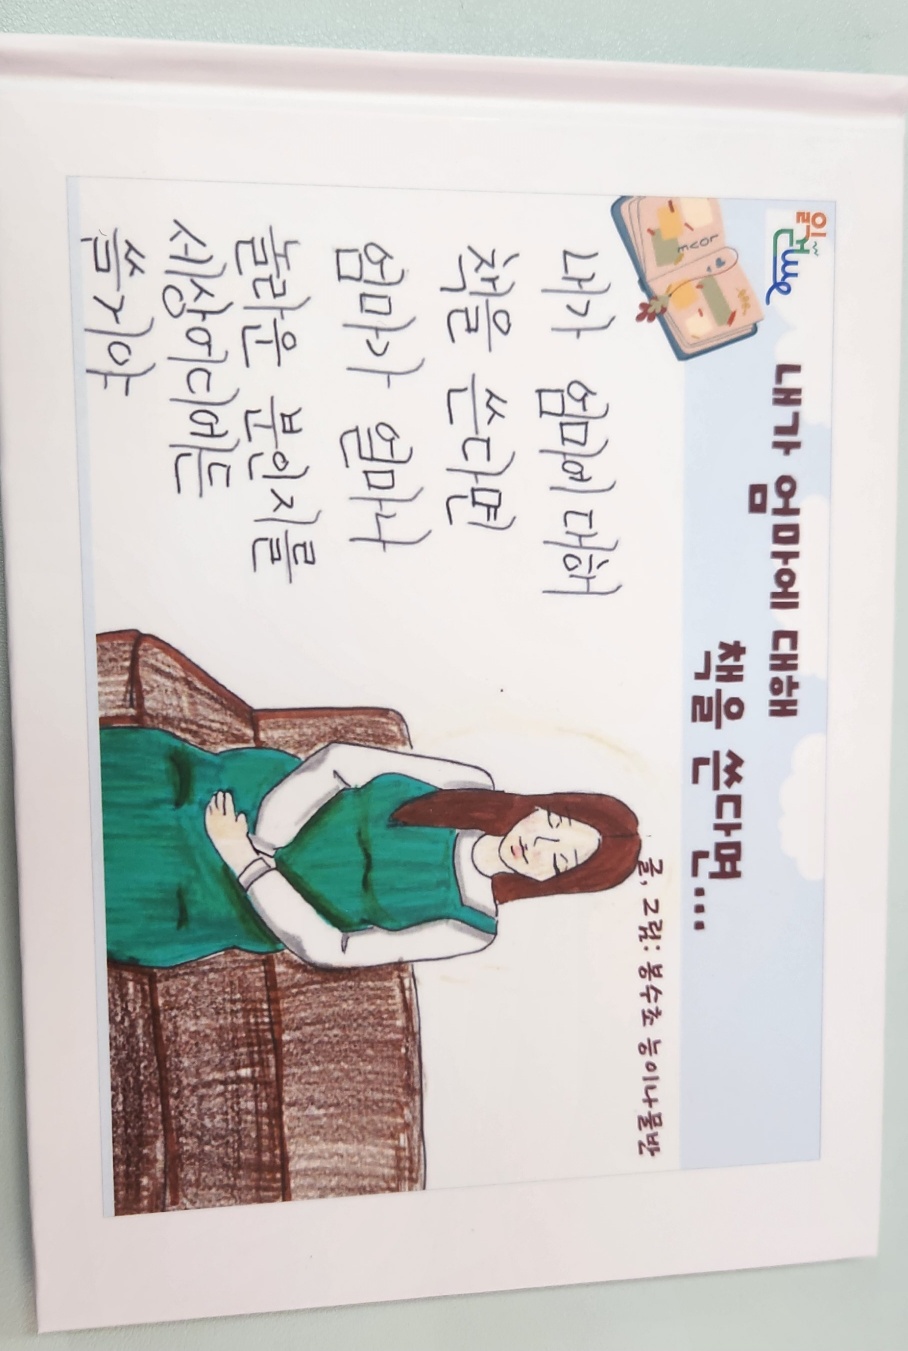 내가 엄마에 대해
책을 쓴다면...
글, 그림: 봉수초 능이나물반
LOVE
내가 엄마에 대해
책을 쓴다면
엄마가 얼마나
놀라운 분인지를
세상어디에든
쓸거야